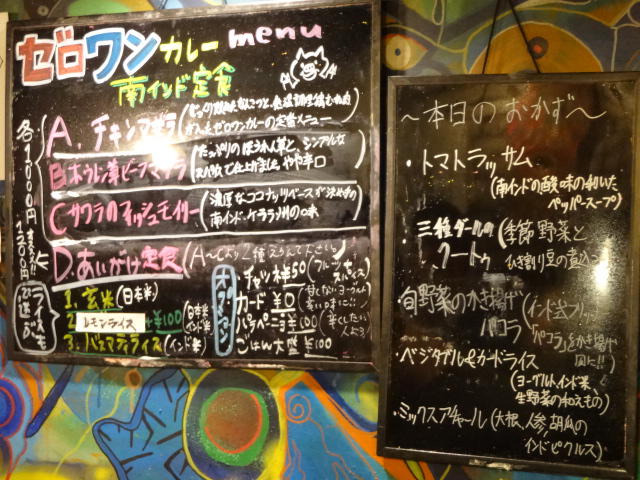 ゼロワンカレー menu
南インド定食
各1000円
A. チキンマサラ
入ったゼロワンカレーの定番メニュー
B ホウレン草ビーフマサラ
たっぷりのほうれん草と、シンプルな
スパイスで仕上げました。やや辛口
C サワラのフィッシュモイリー
濃厚なココナッツベースが決め手の
南インド・ケララ州の味
D. あいがけ定食 (A〜Cより2種えらんで下さい。)
1200円
ライスも
お選び
1. 玄米 (日本米)
2. レモンライス +¥100 (日本米 インド米)
3. バスマティライス (インド米)
オプション
チャツネ ¥50 (フルーツ
カード ¥0
パパド
ごはん大盛 ¥100
〜本日のおかず〜
・トマトラッサム
(南インドの酸味の利いた
ペッパースープ)
・三種ダールの
クートゥ
(季節野菜と
ひき割り豆の煮込)
・旬野菜のかき揚げ
パコラ
(インド式
「パコラ」をかき揚げ
風に!!)
・ベジタブルカードライス
(ヨーグルトインド米、
生野菜の和えもの)
・ミックスアチャール (大根、人参、胡瓜の
インドピクルス)